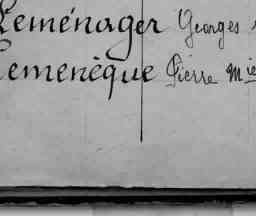 Leménager Georges
Lemenèque Pierre Mie